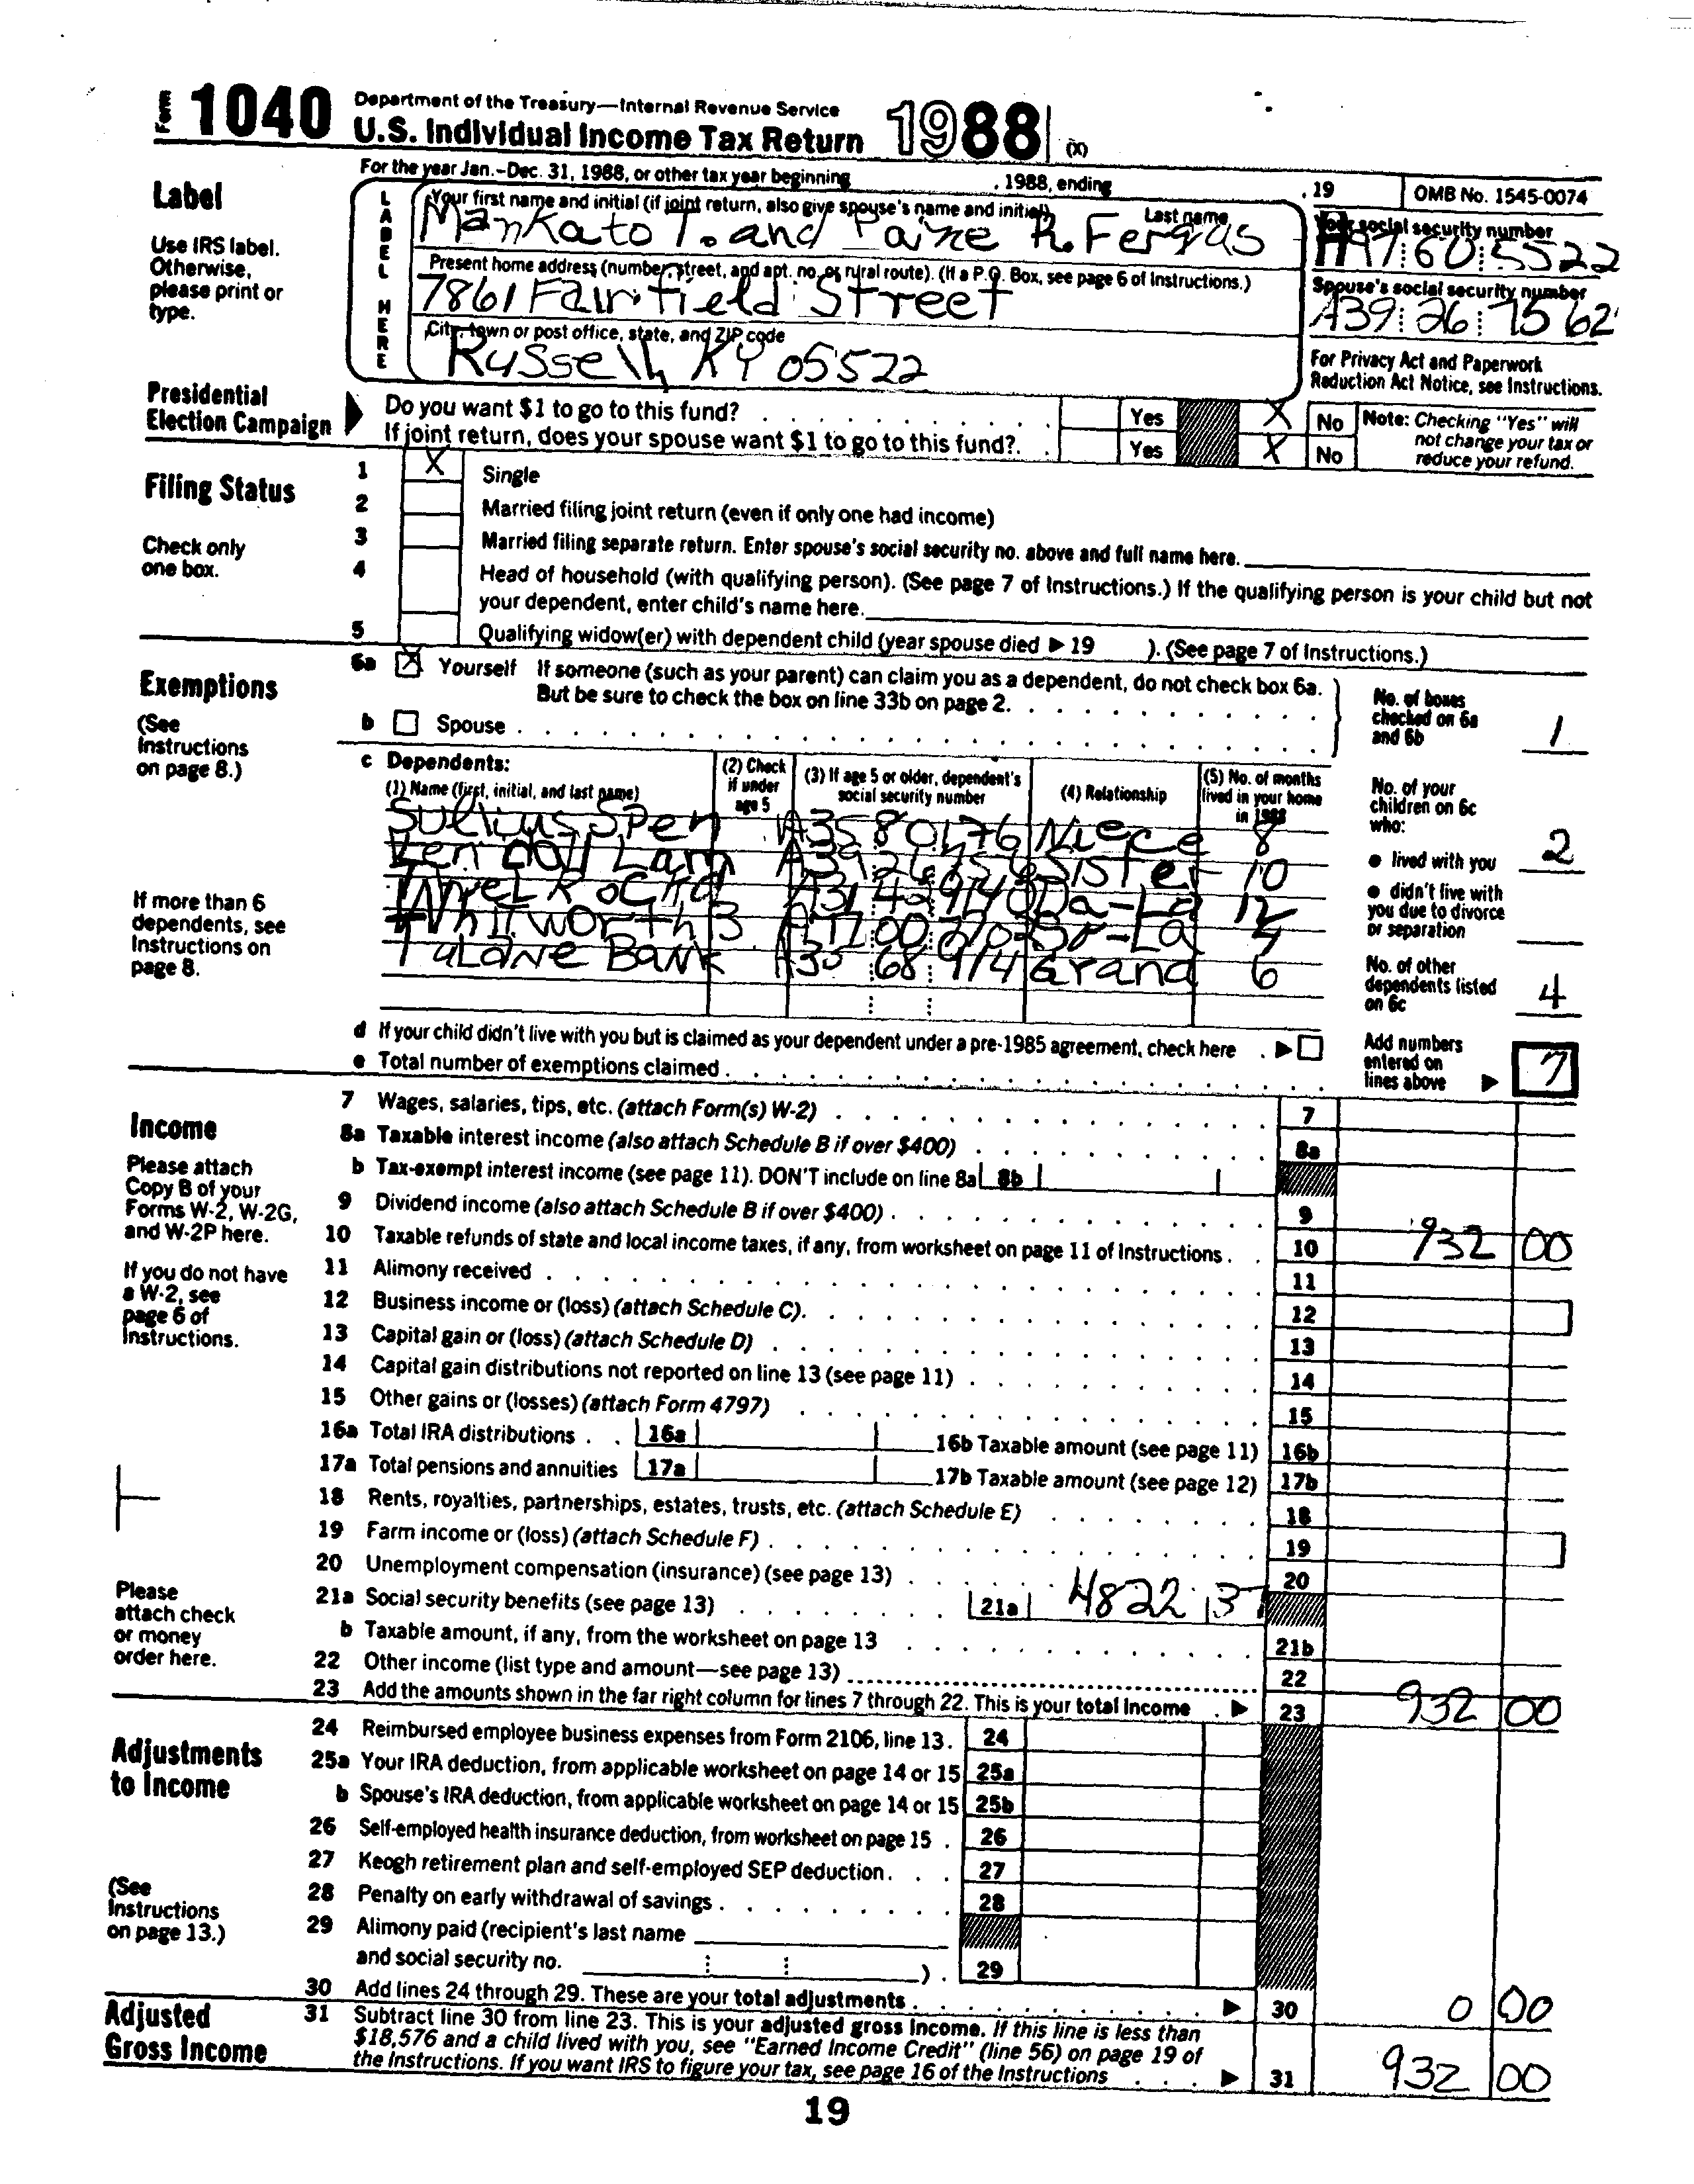 Form 1040 Department of the Treasury—Internal Revenue Service
U.S. Individual Income Tax Return 1988 (X)
For the year Jan.-Dec. 31, 1988, or other tax year beginning , 1988, ending , 19 OMB No. 1545-0074
Label
Use IRS label. Otherwise, please print or type.
LABEL HERE
Your first name and initial (if joint return, also give spouse's name and initial) Last name
Mankato T. and Paine R. Fergus
Your social security number
A97 60 5522
Present home address (number, street, and apt. no. or rural route). (If a P.O. Box, see page 6 of Instructions.)
7861 Fairfield Street
Spouse's social security number
A39 26 7562
City, town or post office, state, and ZIP code
Russell, KY 05522
For Privacy Act and Paperwork Reduction Act Notice, see Instructions.
Presidential Election Campaign
Do you want $1 to go to this fund? Yes X No
If joint return, does your spouse want $1 to go to this fund? Yes X No
Note: Checking "Yes" will not change your tax or reduce your refund.
Filing Status
Check only one box.
1 X Single
2 Married filing joint return (even if only one had income)
3 Married filing separate return. Enter spouse's social security no. above and full name here.
4 Head of household (with qualifying person). (See page 7 of Instructions.) If the qualifying person is your child but not
your dependent, enter child's name here.
5 Qualifying widow(er) with dependent child (year spouse died ▶ 19 ). (See page 7 of Instructions.)
Exemptions
(See Instructions on page 8.)
6a X Yourself If someone (such as your parent) can claim you as a dependent, do not check box 6a.
But be sure to check the box on line 33b on page 2.
b Spouse
No. of boxes checked on 6a and 6b 1
c Dependents:
(1) Name (first, initial, and last name) (2) Check if under age 5 (3) If age 5 or older, dependent's social security number (4) Relationship (5) No. of months lived in your home in 1988
Sullius Spen Niece 8
Lam Sister 10
Da-La 12
Whitworth B
Tulane Bank Grand 6
If more than 6 dependents, see Instructions on page 8.
No. of your children on 6c who:
● lived with you 2
● didn't live with you due to divorce or separation
No. of other dependents listed on 6c 4
d If your child didn't live with you but is claimed as your dependent under a pre-1985 agreement, check here ▶
e Total number of exemptions claimed
Add numbers entered on lines above ▶ 7
Income
Please attach Copy B of your Forms W-2, W-2G, and W-2P here.
If you do not have a W-2, see page 6 of Instructions.
7 Wages, salaries, tips, etc. (attach Form(s) W-2) 7
8a Taxable interest income (also attach Schedule B if over $400) 8a
b Tax-exempt interest income (see page 11). DON'T include on line 8a 8b
9 Dividend income (also attach Schedule B if over $400) 9
10 Taxable refunds of state and local income taxes, if any, from worksheet on page 11 of Instructions 10 932 00
11 Alimony received 11
12 Business income or (loss) (attach Schedule C) 12
13 Capital gain or (loss) (attach Schedule D) 13
14 Capital gain distributions not reported on line 13 (see page 11) 14
15 Other gains or (losses) (attach Form 4797) 15
16a Total IRA distributions 16a 16b Taxable amount (see page 11) 16b
17a Total pensions and annuities 17a 17b Taxable amount (see page 12) 17b
18 Rents, royalties, partnerships, estates, trusts, etc. (attach Schedule E) 18
19 Farm income or (loss) (attach Schedule F) 19
20 Unemployment compensation (insurance) (see page 13) 20
Please attach check or money order here.
21a Social security benefits (see page 13) 21a 4822 37
b Taxable amount, if any, from the worksheet on page 13 21b
22 Other income (list type and amount—see page 13) 22
23 Add the amounts shown in the far right column for lines 7 through 22. This is your total income ▶ 23 932 00
Adjustments to Income
(See Instructions on page 13.)
24 Reimbursed employee business expenses from Form 2106, line 13 24
25a Your IRA deduction, from applicable worksheet on page 14 or 15 25a
b Spouse's IRA deduction, from applicable worksheet on page 14 or 15 25b
26 Self-employed health insurance deduction, from worksheet on page 15 26
27 Keogh retirement plan and self-employed SEP deduction 27
28 Penalty on early withdrawal of savings 28
29 Alimony paid (recipient's last name
and social security no. ) 29
30 Add lines 24 through 29. These are your total adjustments ▶ 30 0 00
Adjusted Gross Income
31 Subtract line 30 from line 23. This is your adjusted gross income. If this line is less than
$18,576 and a child lived with you, see "Earned Income Credit" (line 56) on page 19 of
the Instructions. If you want IRS to figure your tax, see page 16 of the Instructions ▶ 31 932 00
19